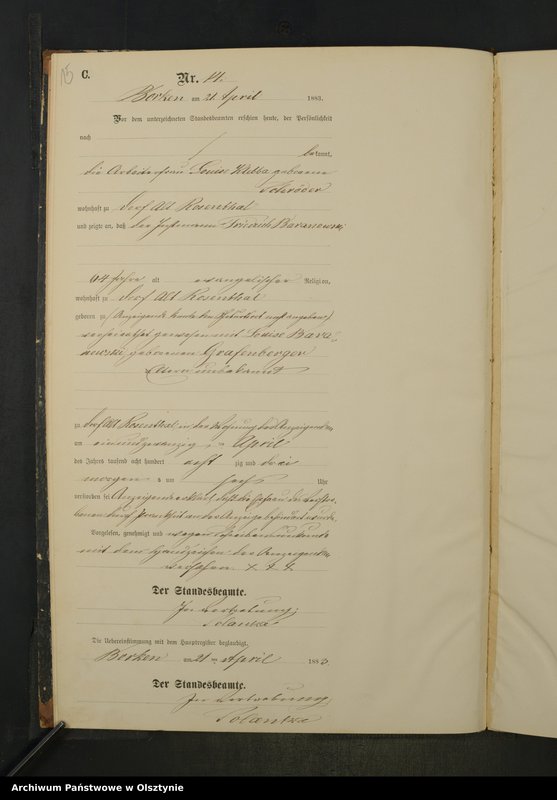 15
C.
Nr. 14.
Borken am 21. April 1883.
Vor dem unterzeichneten Standesbeamten erschien heute, der Persönlichkeit
nach
bekannt,
die Arbeiterfrau Louise Klekka geborene
Schröder
wohnhaft zu Dorf Alt Rosenthal
und zeigte an, daß der Instmann Friedrich Baranowski
64 Jahre alt evangelischer Religion,
wohnhaft zu Dorf Alt Rosenthal
geboren zu (Anzeigende konnte den Geburtsort nicht angeben)
verheirathet gewesen mit Louise Bara-
nowski geborenen Grafenberger
Eltern unbekannt
zu Dorf Alt Rosenthal in der Wohnung des Anzeigenden
am einundzwanzig ten April
des Jahres tausend acht hundert acht zig und drei
morgens um sechs Uhr
verstorben sei Anzeigende erklärt, daß die Ehefrau des Verstor-
benen durch Krankheit an der Anzeige behindert wurde.
Vorgelesen, genehmigt und wegen Schreibensunkunde
mit dem Handzeichen der Anzeigenden
versehen. + + +
Der Standesbeamte.
In Vertretung:
Polenka
Die Uebereinstimmung mit dem Hauptregister beglaubigt.
Borken am 21 ten April 1883.
Der Standesbeamte.
In Vertretung
Archiwum Państwowe w Olsztynie